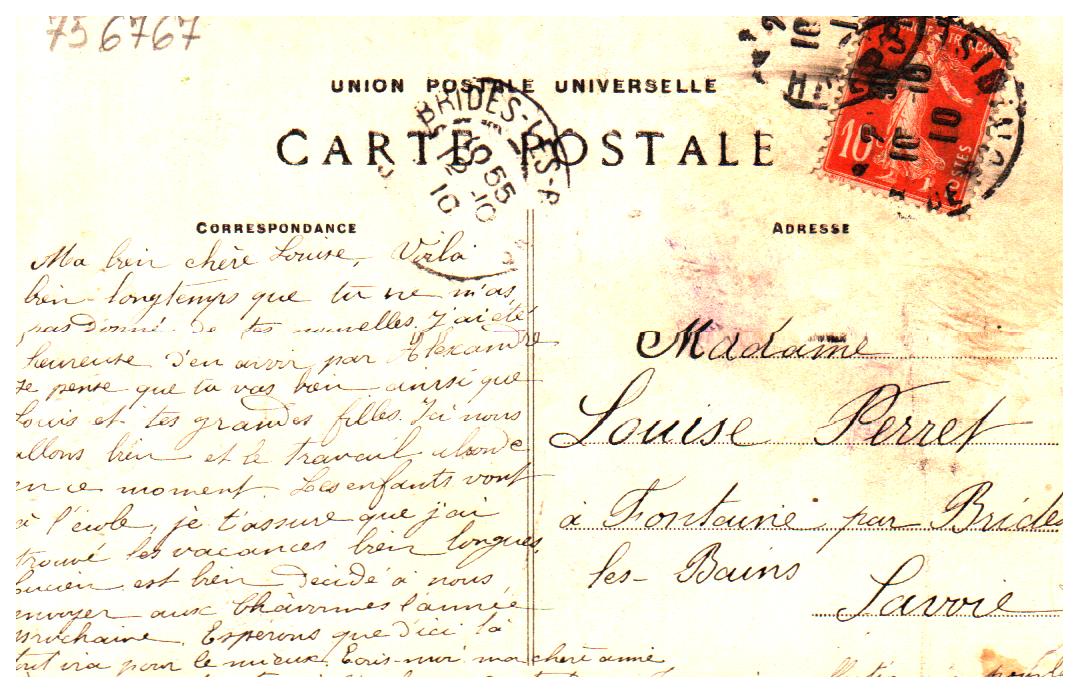 756767
UNION POSTALE UNIVERSELLE
CARTE POSTALE
BRIDES-LES-B
10
POSTES
CORRESPONDANCE
ADRESSE
Ma bien chère Louise, Voilà
bien longtemps que tu ne m'as
pas donné de tes nouvelles. J'ai été
heureuse d'en avoir par Alexandre
Je pense que tu vas bien ainsi que
Louis et tes grandes filles. Ici nous
allons bien et le travail abonde
en ce moment. Les enfants vont
à l'école, je t'assure que j'ai
trouvé les vacances bien longues.
Lucien est bien décidé à nous
envoyer aux Chavonnes l'année
prochaine. Espérons que d'ici là
tout ira pour le mieux. Ecris-moi ma chère amie
Madame
Louise Perret
à Fontaine par Brides
les-Bains
Savoie